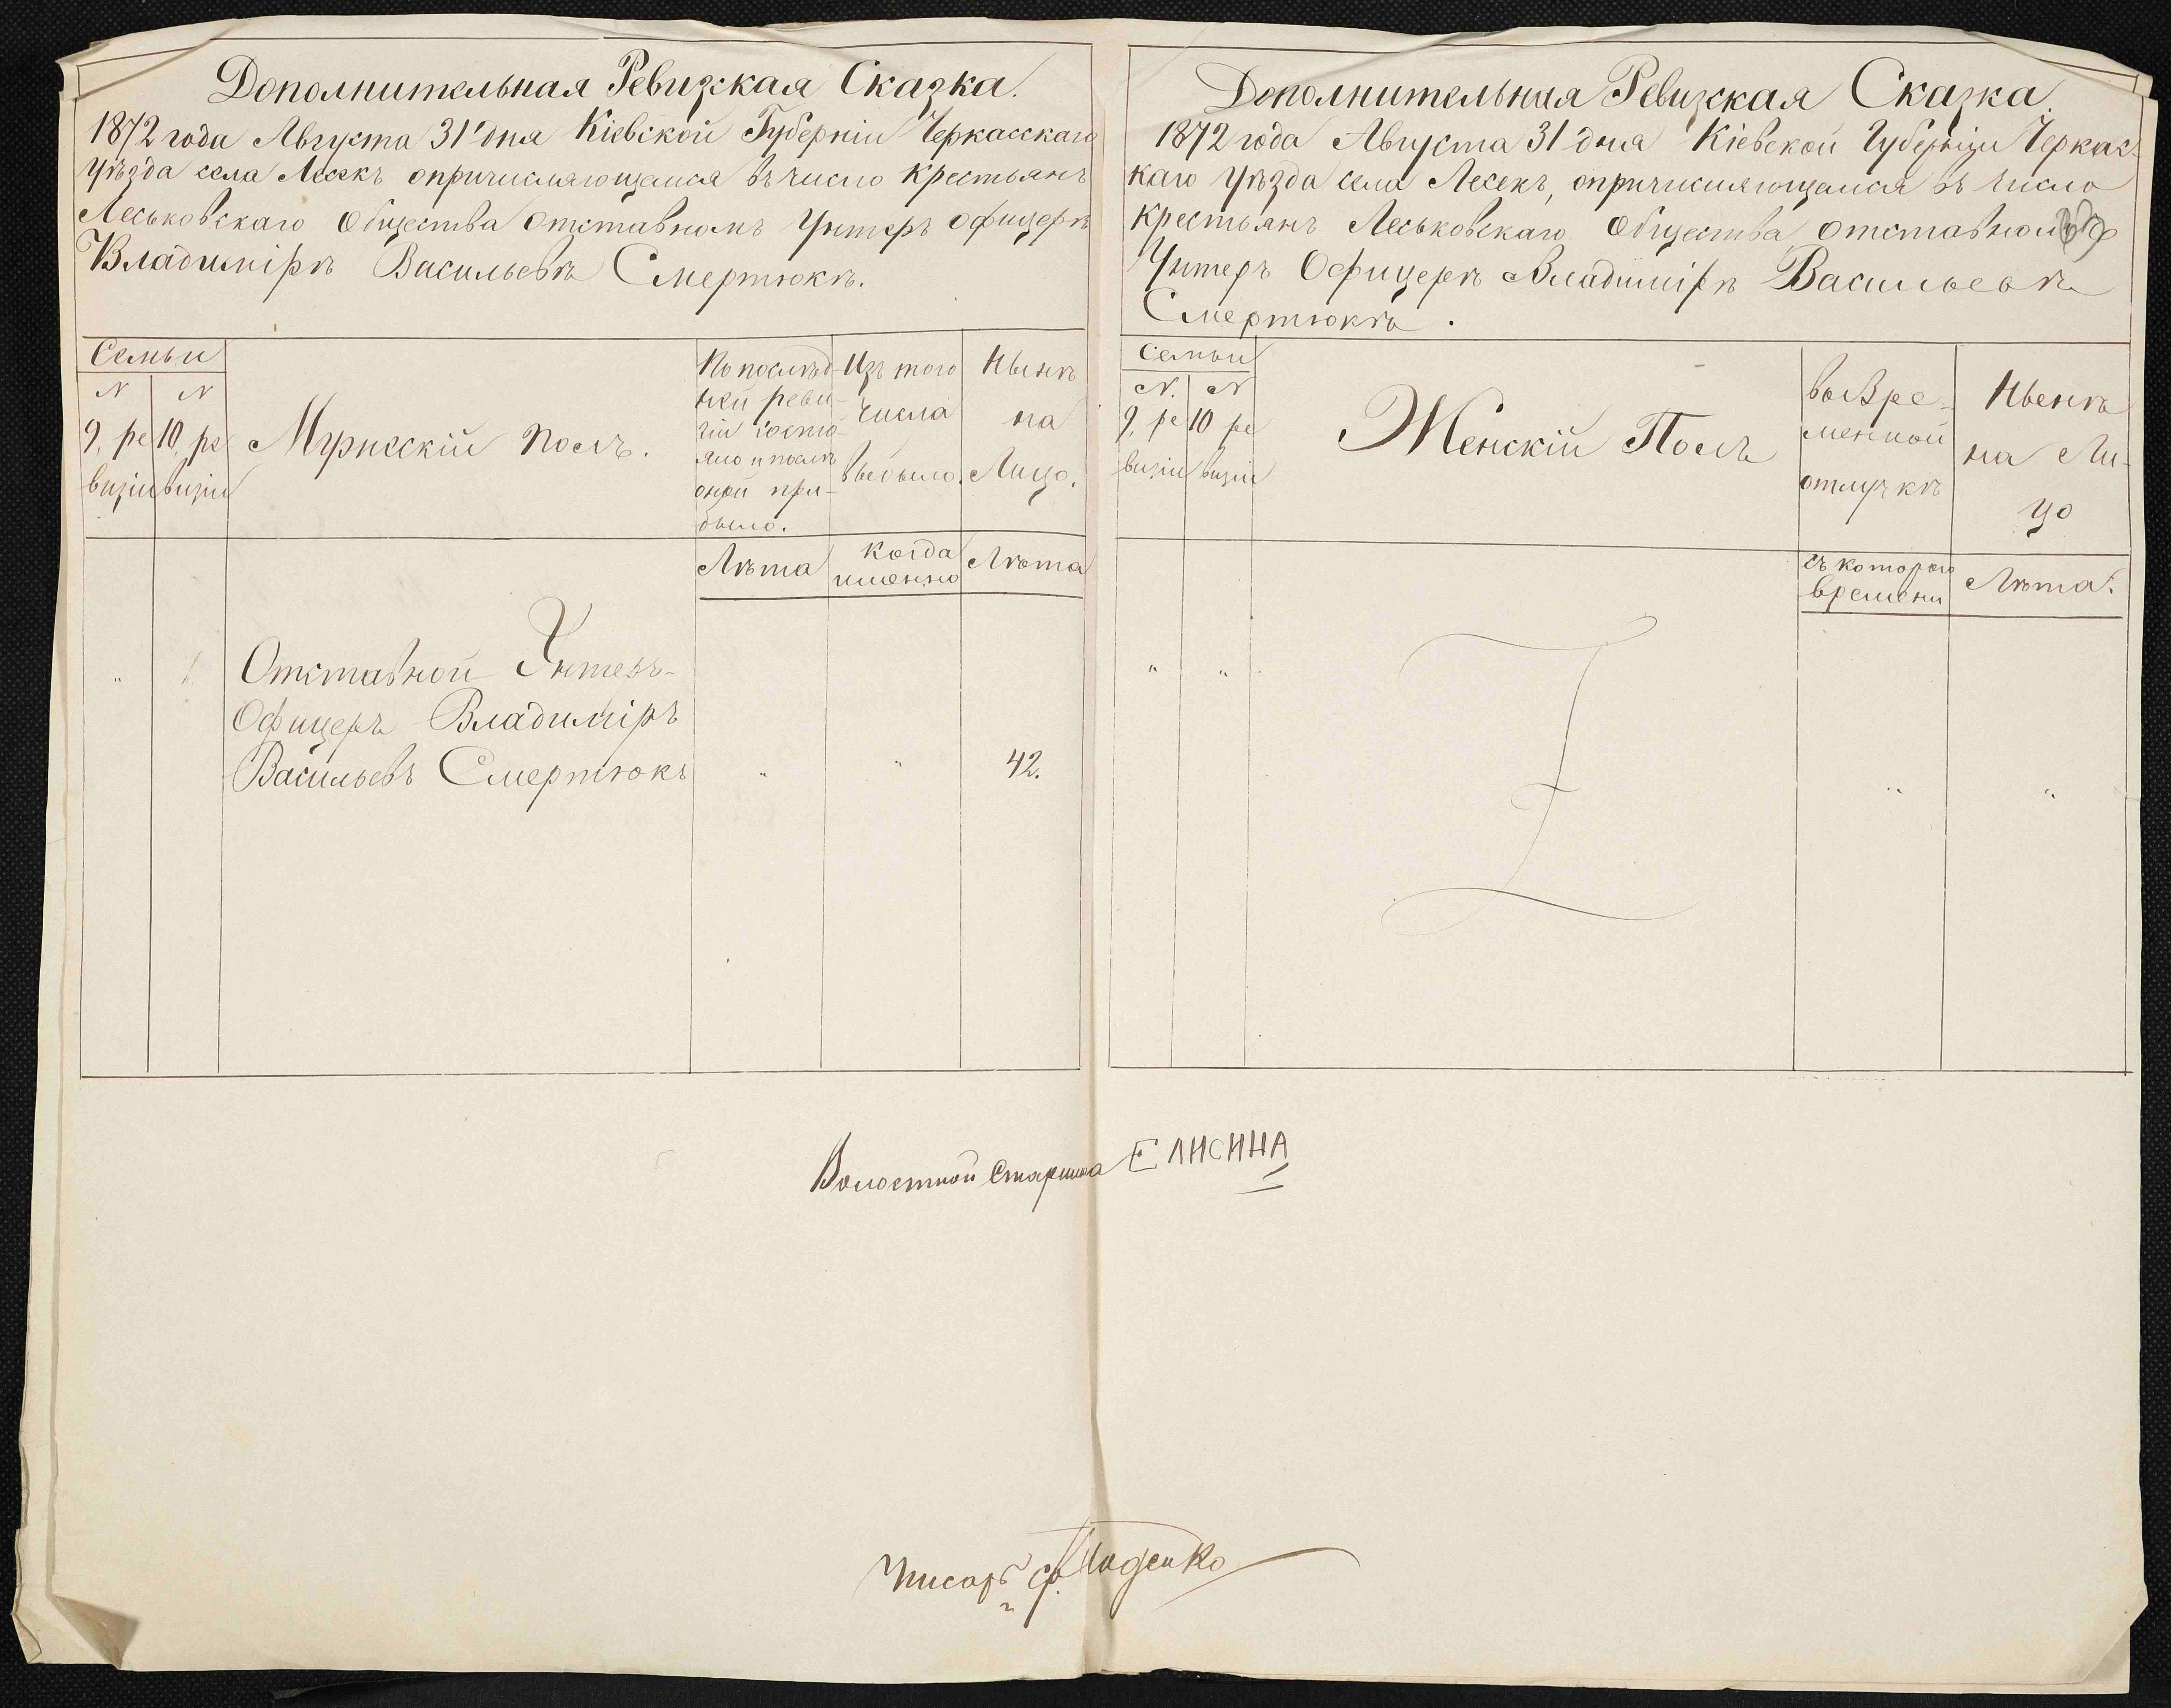 Дополнительная Ревизская Сказка.
1872 года Августа 31 дня Кіевской Губерніи Черкасскаго
Уѣзда села Лесекъ опричисляющемся въ число крестьянъ
Леськовскаго Общества отставномъ Унтеръ офицерѣ
Владимірѣ Васильевѣ Смертюкѣ.
Семьи
N N
9. ре 10. ре
визіи визіи
Мужескій полъ.
По послѣд-
ней реви-
зіи состо-
яло и послѣ
оной при-
было.
Изъ того
числа
выбыло.
Нынѣ
на
Лицо.
Лѣта
когда
именно
Лѣта
" 1. Отставной Унтеръ-
Офицеръ Владиміръ
Васильевъ Смертюкъ " " 42.
Дополнительная Ревизская Сказка.
1872 года Августа 31 дня Кіевской Губерніи Черкас-
каго Уѣзда села Лесекъ, опричисляющемся въ число
крестьянъ Леськовскаго Общества отставномъ
Унтеръ Офицерѣ Владимірѣ Васильевѣ
Смертюкѣ.
Семьи
N. N
9. ре 10 ре
визіи визіи
Женскій Полъ
во Вре-
менной
отлучкѣ
Нынѣ
на Ли-
цо
съ котораго
времени
Лѣта.
" "
" "
Волостной Старшина ЕЛИСИНА
Писарь